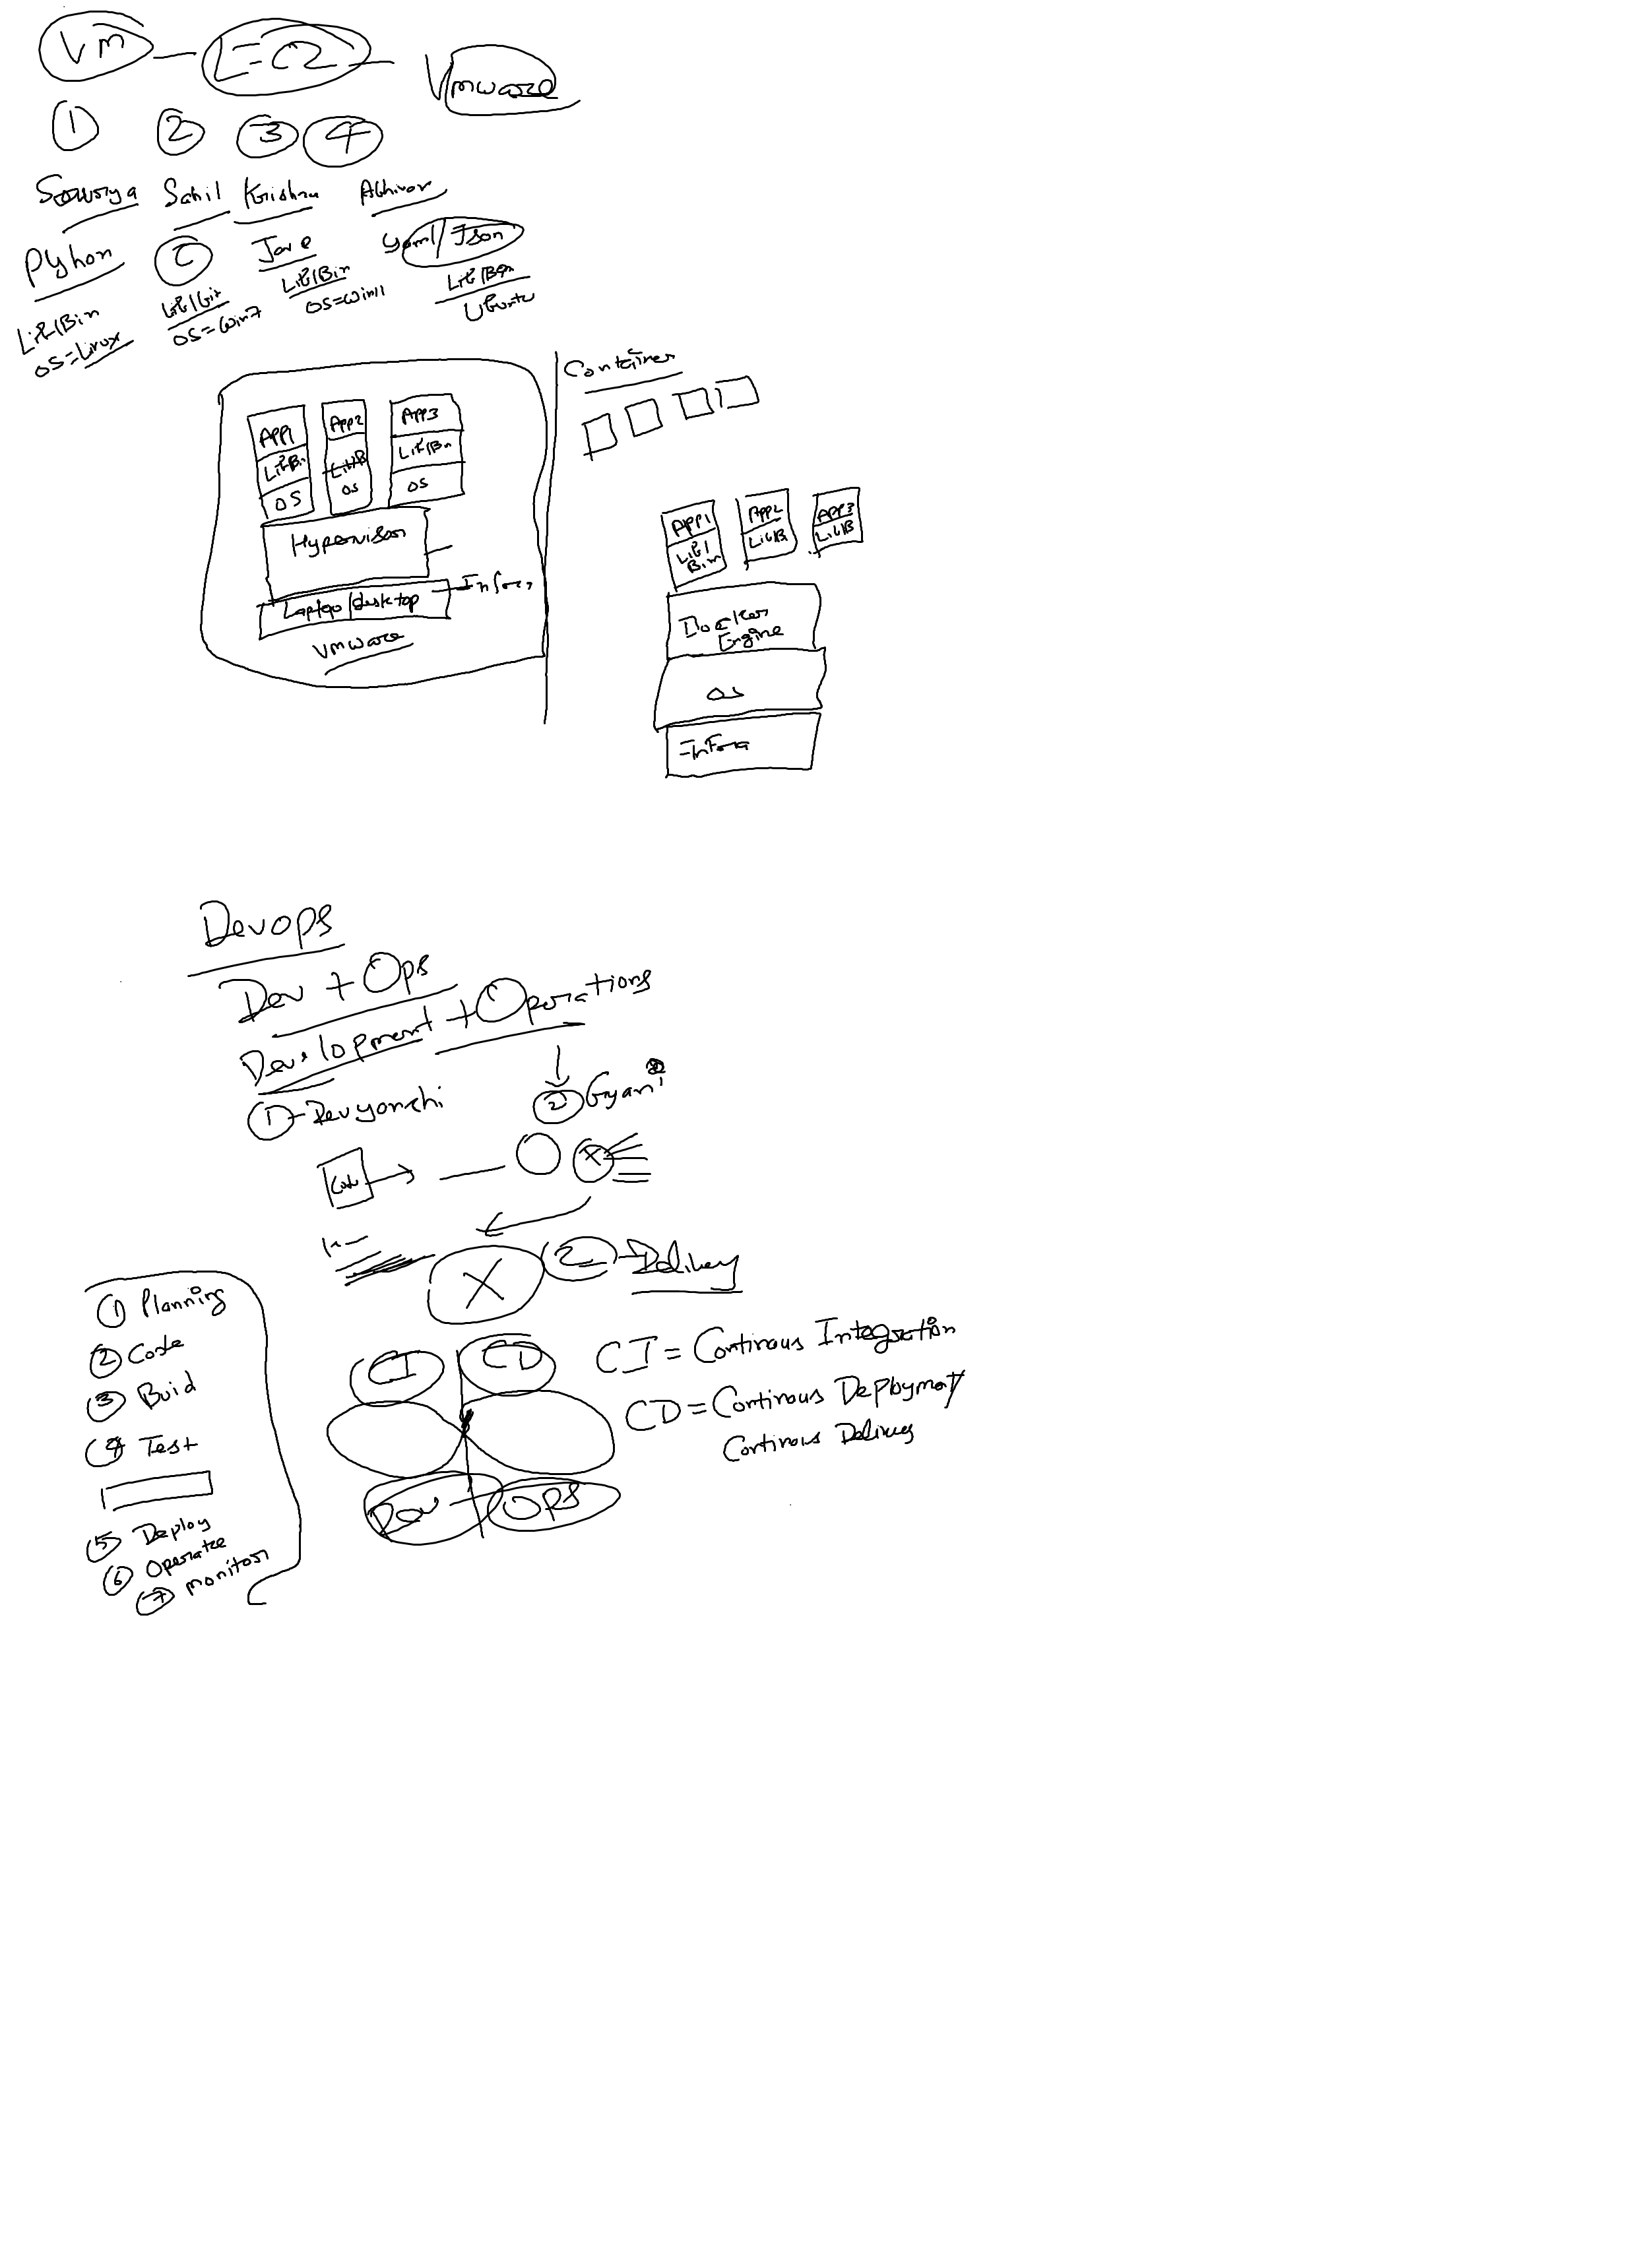 Vm — EC2 — Vmware
① ② ③ ④
Sowrya Sahil Krishna Abhinav
Pyhon C Java Yaml/Json
Lib/Bin Lib/Bin Lib/Bin Lib/Bin
OS=Linux OS=Win7 OS=Win11 Ubuntu
Container
APP1 APP2 APP3
Lib/Bin Lib/B Lib/Bin
OS OS OS
Hypervisor
Laptop/desktop Infra
Vmware
APP1 APP2 APP3
Lib/Bin Lib/B Lib/B
Docker
Engine
OS
Infra
Devops
Dev + Ops
Development + Operations
①-Devyanshi ② Gyani
Code
X
X ②-Delivery
① Planning
② Code
③ Buid
④ Test
⑤ Deploy
⑥ Operate
⑦ monitor
CI CD
Dev + OPS
CI = Continous Integration
CD = Continous Deployment
Continous Delivery